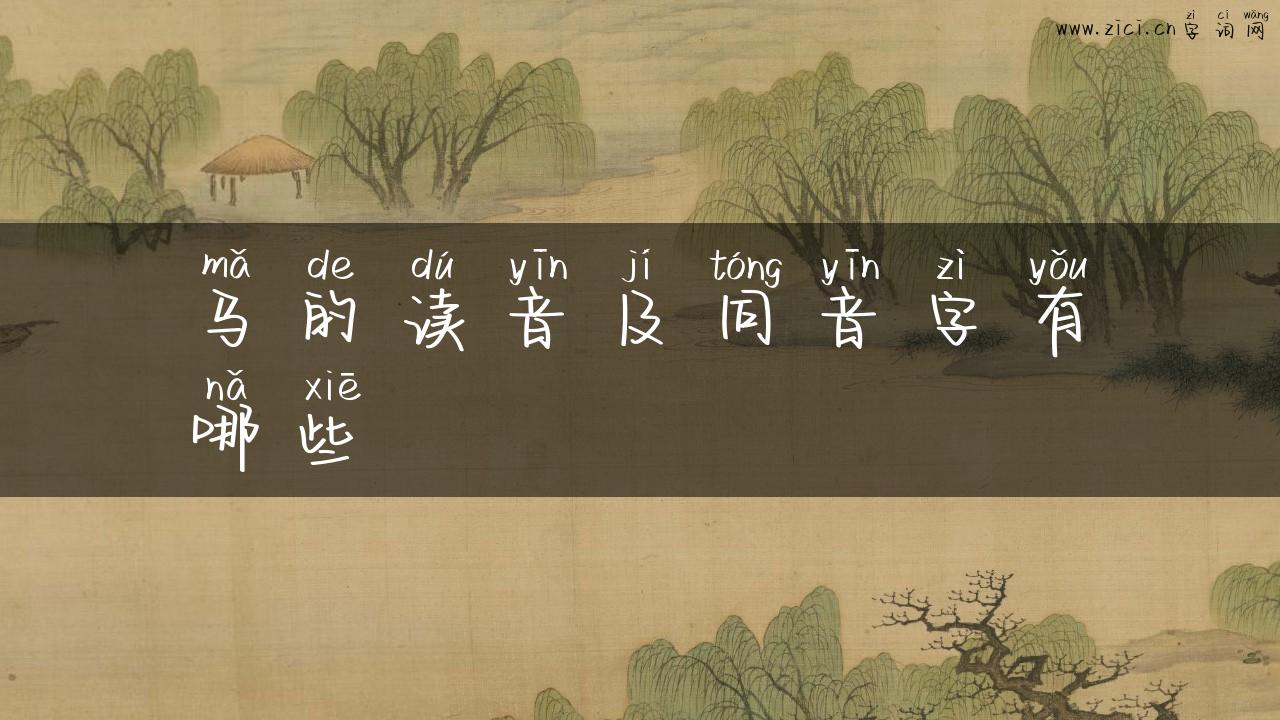 zì cí wǎng
www.zici.cn 字词网
mǎ de dú yīn jí tóng yīn zì yǒu
马的读音及同音字有
nǎ xiē
哪些